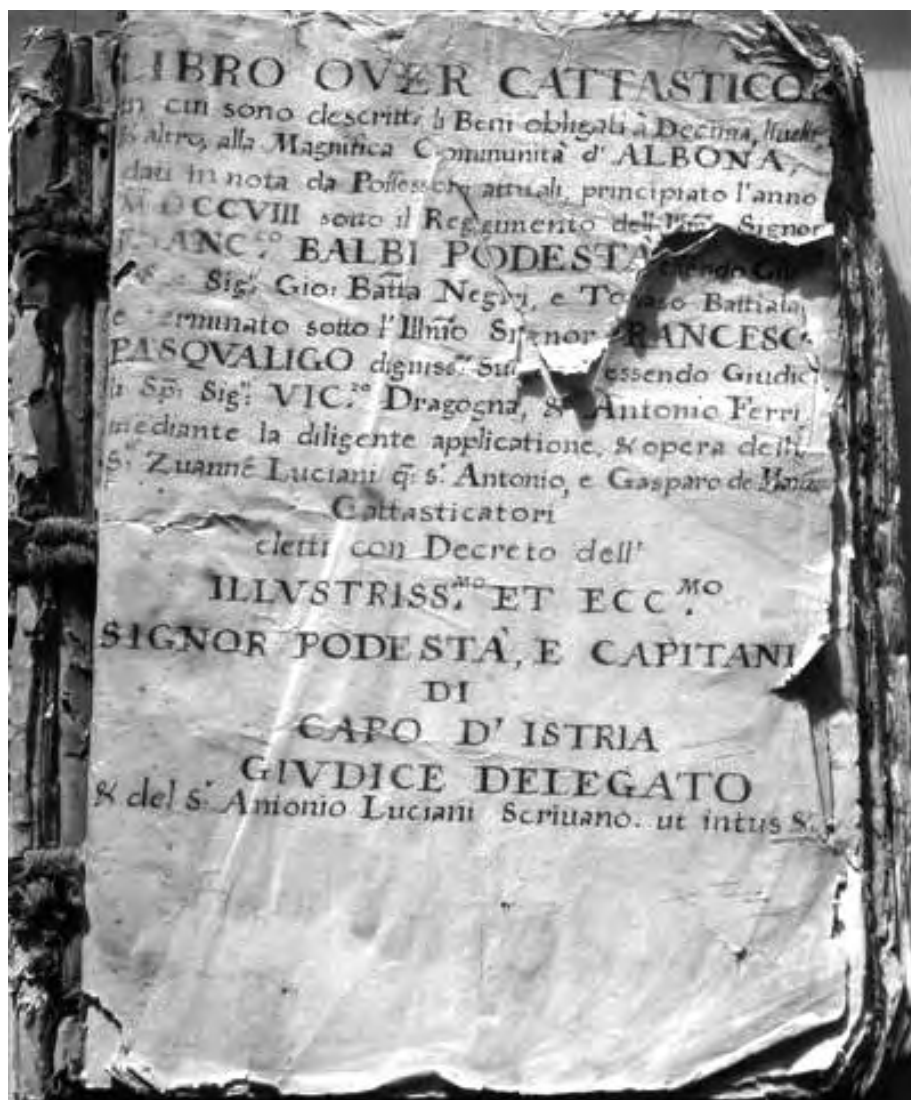 LIBRO OVER CATTASTICO
in cui sono descritti li Beni obligati à Decima,
& altro, alla Magnifica Communità d' ALBONA,
dati in nota da Possessori attuali, principiato l'anno
MDCCVIII sotto il Reggimento dell' Signor
FRANC.CO BALBI PODESTÀ
Sig.ri Gio: Batta Negri, e Tomaso Battiala,
e terminato sotto l'Illmo Signor FRANCESCO
PASQVALIGO digniss.mo essendo Giudici
li Sp. Sig.ri VIC.ZO Dragogna, & Antonio Ferri,
mediante la diligente applicatione, & opera delli
S.ri Zuanne Luciani q: s. Antonio, e Gasparo de
Cattasticatori
eletti con Decreto dell'
ILLVSTRISS.MO ET ECC.MO
SIGNOR PODESTÀ, E CAPITANI
DI
CAPO D' ISTRIA
GIVDICE DELEGATO
& del s.r Antonio Luciani Scriuano. ut intus &.